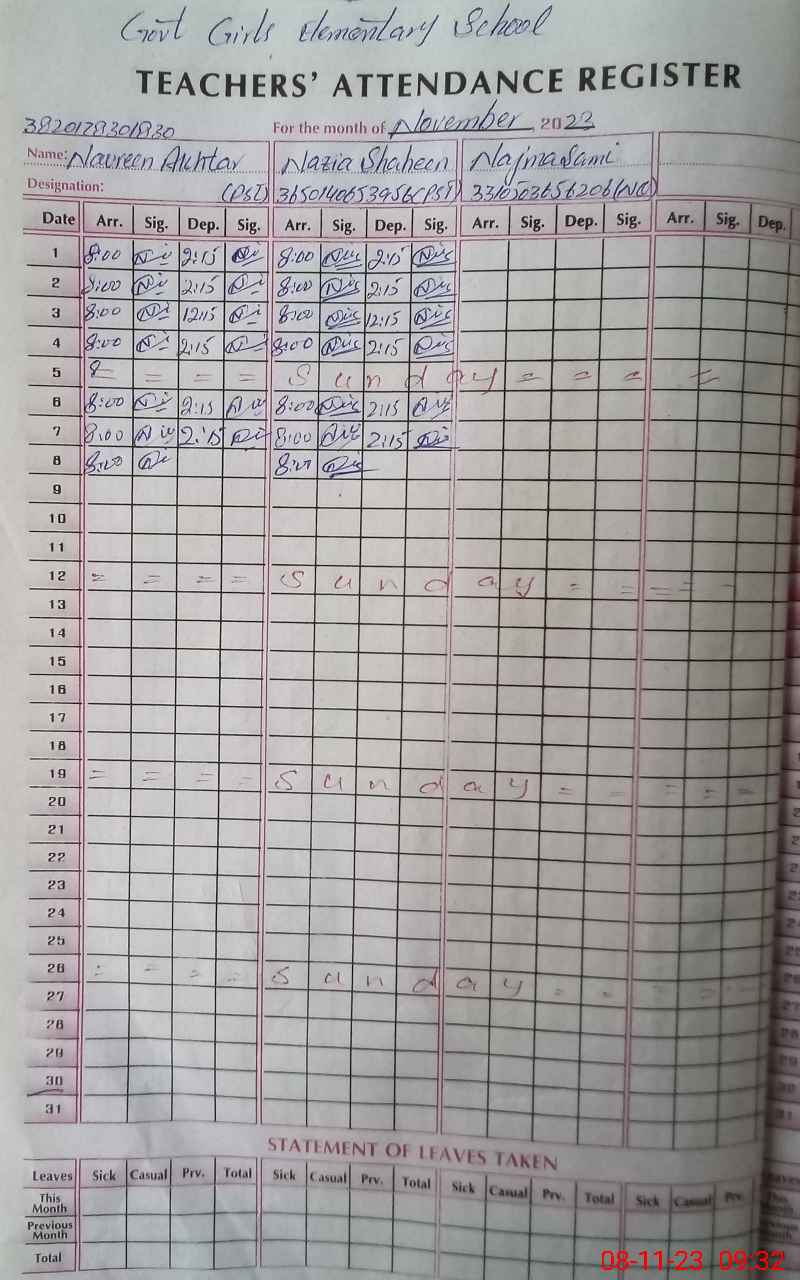 Govt Girls Elementary School
TEACHERS' ATTENDANCE REGISTER
3820129301830 For the month of November 2023
Name: Navreen Akhtar Nazia Shaheen Najma Sami
Designation: (PST) 36501406 53956 (PST) 3310503656206 (NC)
Date Arr. Sig. Dep. Sig. Arr. Sig. Dep. Sig. Arr. Sig. Dep. Sig. Arr. Sig. Dep.
1 8:00 2:15 8:00 2:15
2 8:00 2:15 8:00 2:15
3 8:00 12:15 8:00 12:15
4 8:00 2:15 8:00 2:15
5 = = = Sunday = = = =
6 8:00 2:15 8:00 2:15
7 8:00 2:15 8:00 2:15
8 8:00 8:00
9
10
11
12 = = = = Sunday = = = = -
13
14
15
16
17
18
19 = = = = Sunday = = = = =
20
21
22
23
24
25
26 = = = = Sunday = =
27
28
29
30
31
STATEMENT OF LEAVES TAKEN
Leaves Sick Casual Prv. Total Sick Casual Prv. Total Sick Casual Prv. Total Sick Casual Prv.
This Month
Previous Month
Total
08-11-23 09:32